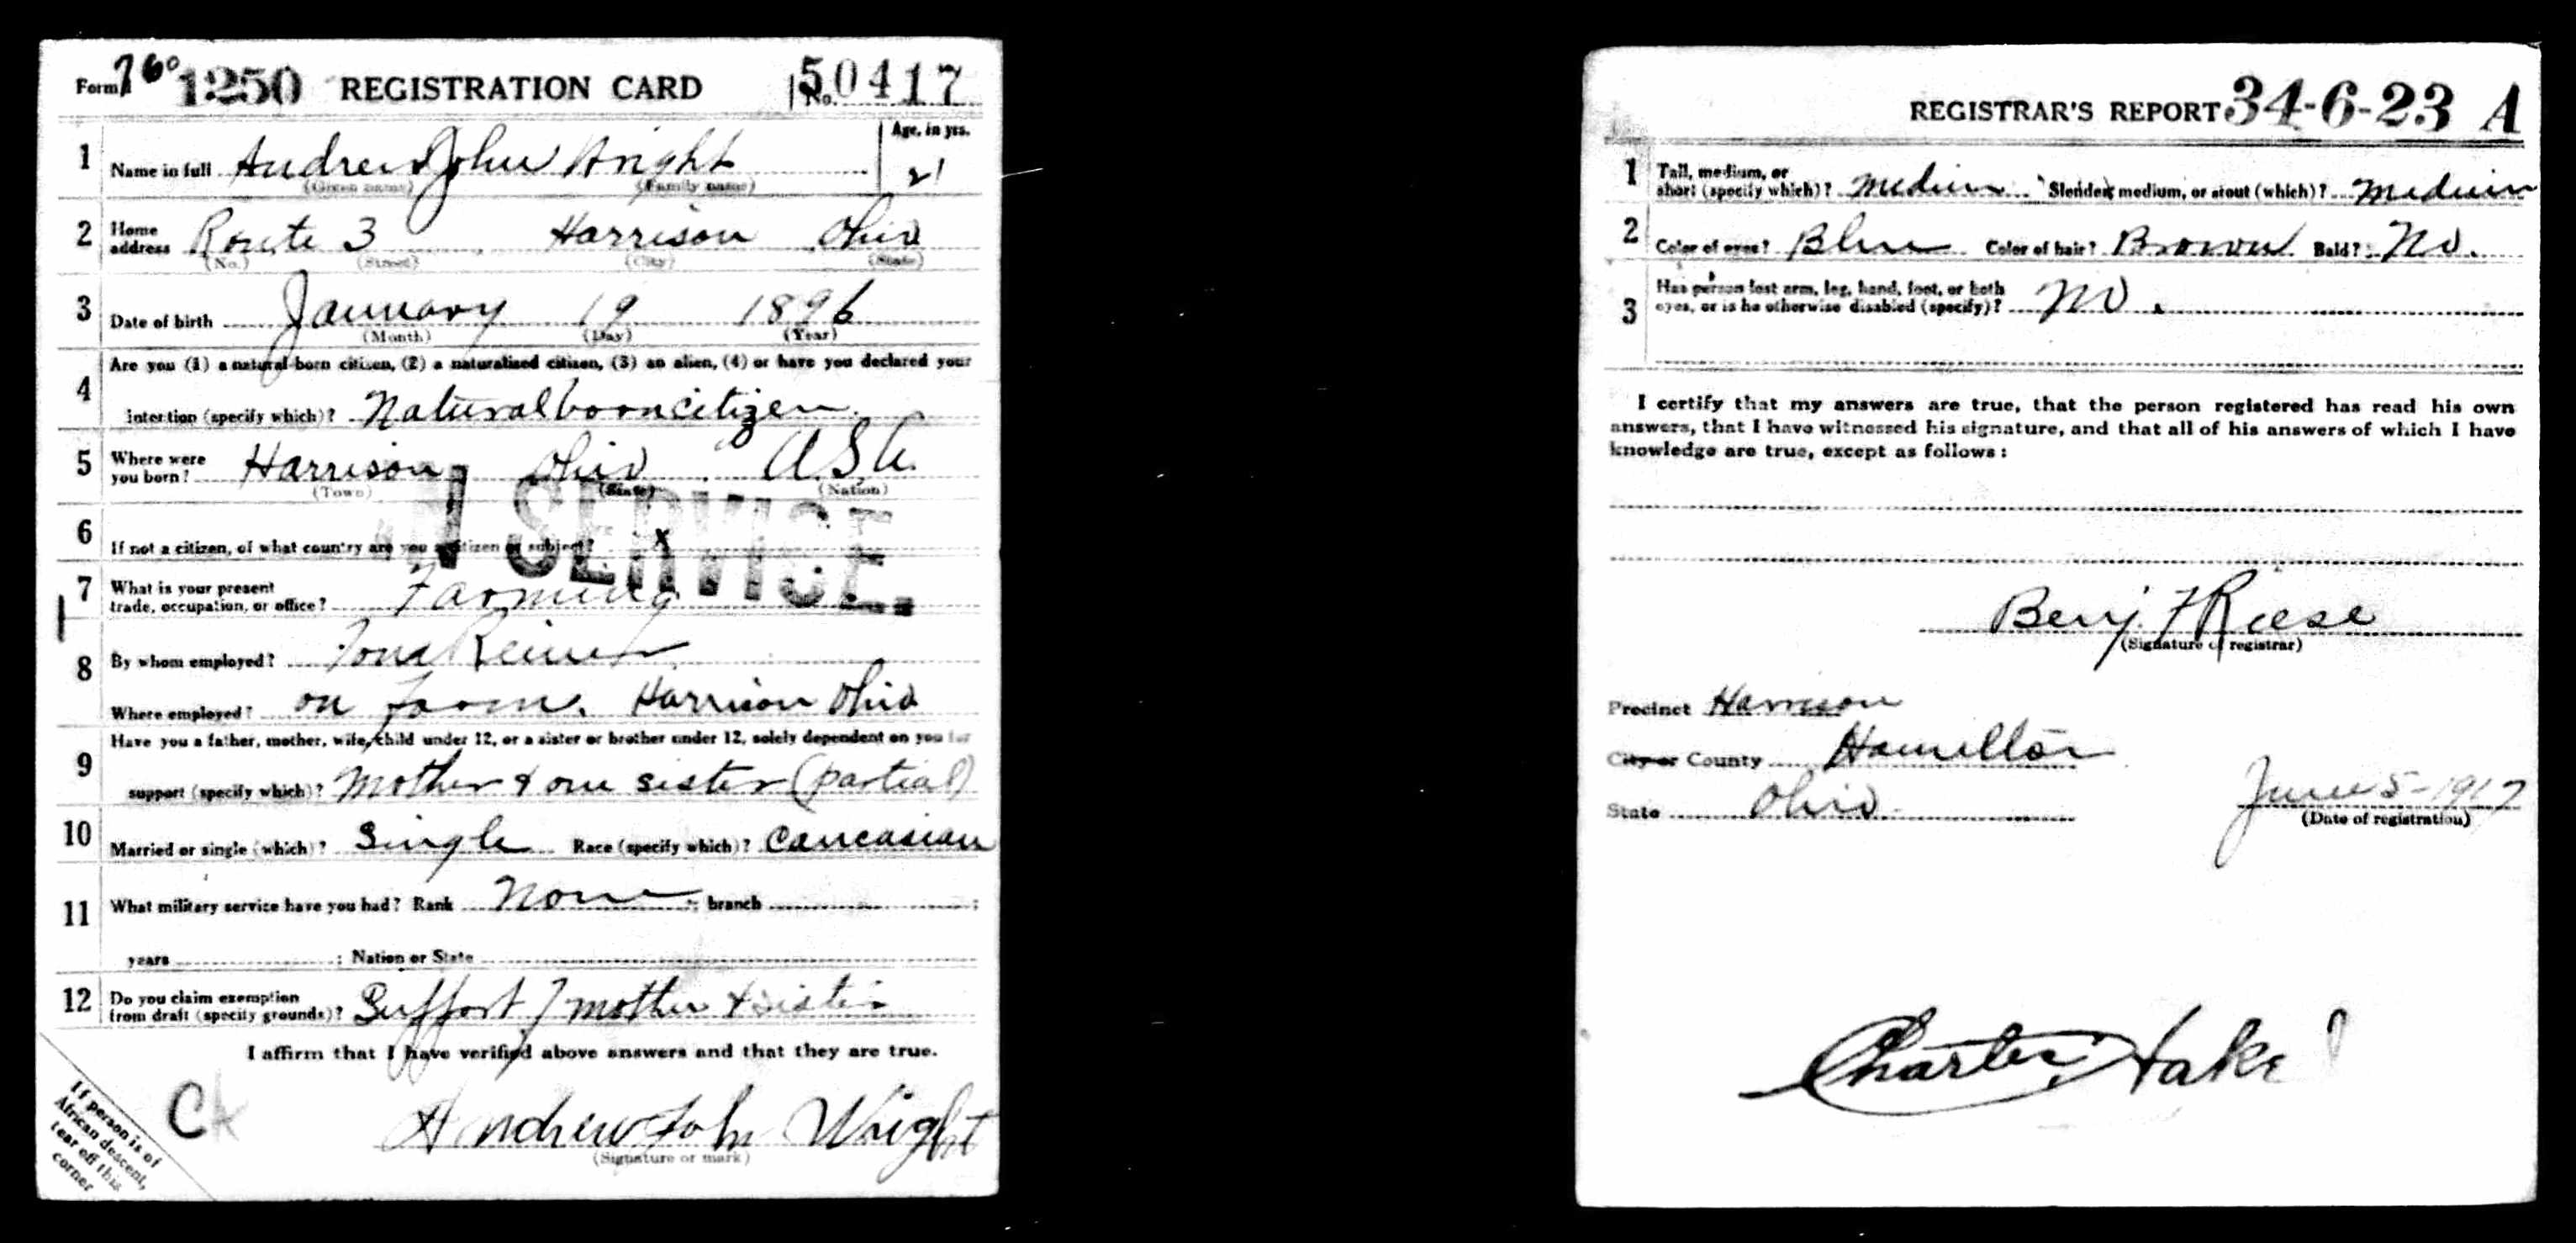 Form 1 760 1250 REGISTRATION CARD No. 50417
1 Name in full Andrew John Wright Age, in yrs. 21
(Given name) (Family name)
2 Home address Route 3 Harrison Ohio
(No.) (Street) (City) (State)
3 Date of birth January 19 1896
(Month) (Day) (Year)
Are you (1) a natural-born citizen, (2) a naturalized citizen, (3) an alien, (4) or have you declared your
4 intention (specify which)? Natural born citizen
5 Where were you born? Harrison Ohio U.S.A.
(Town) (State) (Nation)
IN SERVICE.
6 If not a citizen, of what country are you a citizen or subject? x
7 What is your present trade, occupation, or office? Farming
8 By whom employed?
Where employed? on farm. Harrison Ohio
Have you a father, mother, wife, child under 12, or a sister or brother under 12, solely dependent on you for
9 support (specify which)? Mother & one sister (partial)
10 Married or single (which)? Single Race (specify which)? Caucasian
11 What military service have you had? Rank None ; branch ;
years ; Nation or State
12 Do you claim exemption from draft (specify grounds)? Support of mother & sister
I affirm that I have verified above answers and that they are true.
Ck
Andrew John Wright
(Signature or mark)
If person is of
African descent,
tear off this
corner
REGISTRAR'S REPORT 34-6-23 A
1 Tall, medium, or short (specify which)? Medium Slender, medium, or stout (which)? Medium
2 Color of eyes? Blue Color of hair? Brown Bald? No.
Has person lost arm, leg, hand, foot, or both
3 eyes, or is he otherwise disabled (specify)? No.
I certify that my answers are true, that the person registered has read his own
answers, that I have witnessed his signature, and that all of his answers of which I have
knowledge are true, except as follows:
Benj. F Reese
(Signature of registrar)
Precinct Harrison
City or County Hamilton
State Ohio June 5-1917
(Date of registration)